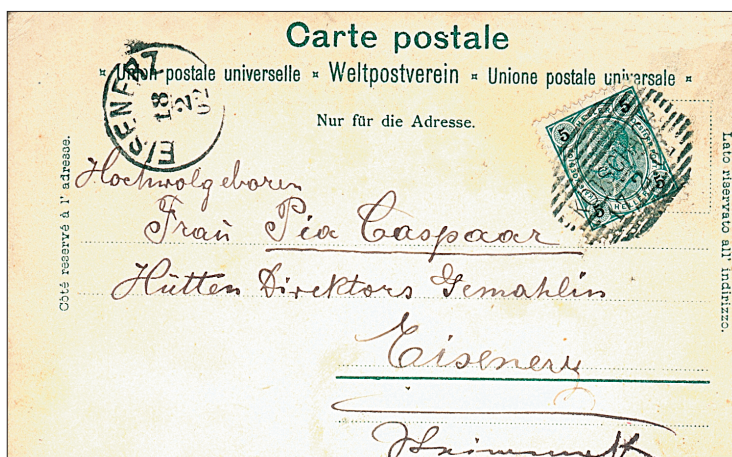 Carte postale
¤ Union postale universelle ¤ Weltpostverein ¤ Unione postale universale ¤
Nur für die Adresse.
EISENERZ
18
2
02
5
5
5
5
Côté reservé à l' adresse.
Lato riservato all' indirizzo.
Hochwolgeboren
Frau Pia Caspaar
Hütten Direktors Gemahlin
Eisenerz